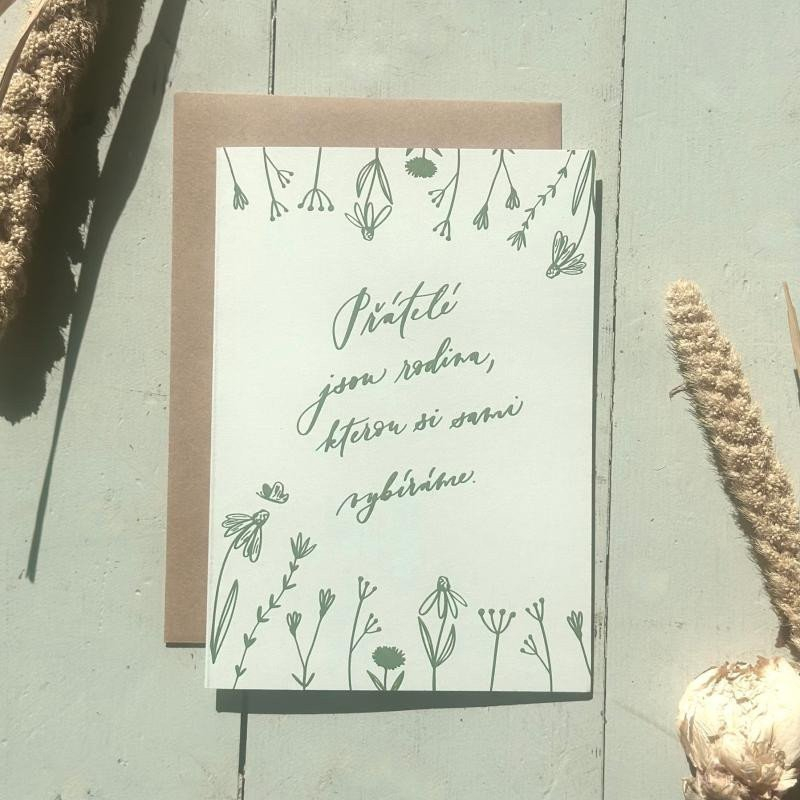 Přátelé
jsou rodina,
kterou si sami
vybíráme.